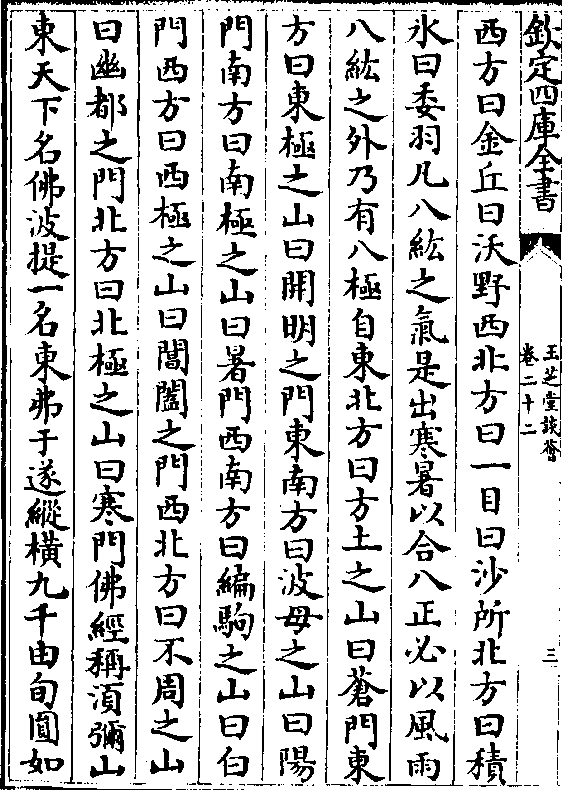 欽定四庫全書
玉芝堂談薈
卷二十二
三
西方曰金丘曰沃野西北方曰一目曰沙所北方曰積
氷曰委羽凡八紘之氣是出寒暑以合八正必以風雨
八紘之外乃有八極自東北方曰方土之山曰蒼門東
方曰東極之山曰開明之門東南方曰波母之山曰陽
門南方曰南極之山曰暑門西南方曰編駒之山曰白
門西方曰西極之山曰閶闔之門西北方曰不周之山
曰幽都之門北方曰北極之山曰寒門佛經稱湏彌山
東天下名佛波提一名東弗于遂縱橫九千由旬圓如